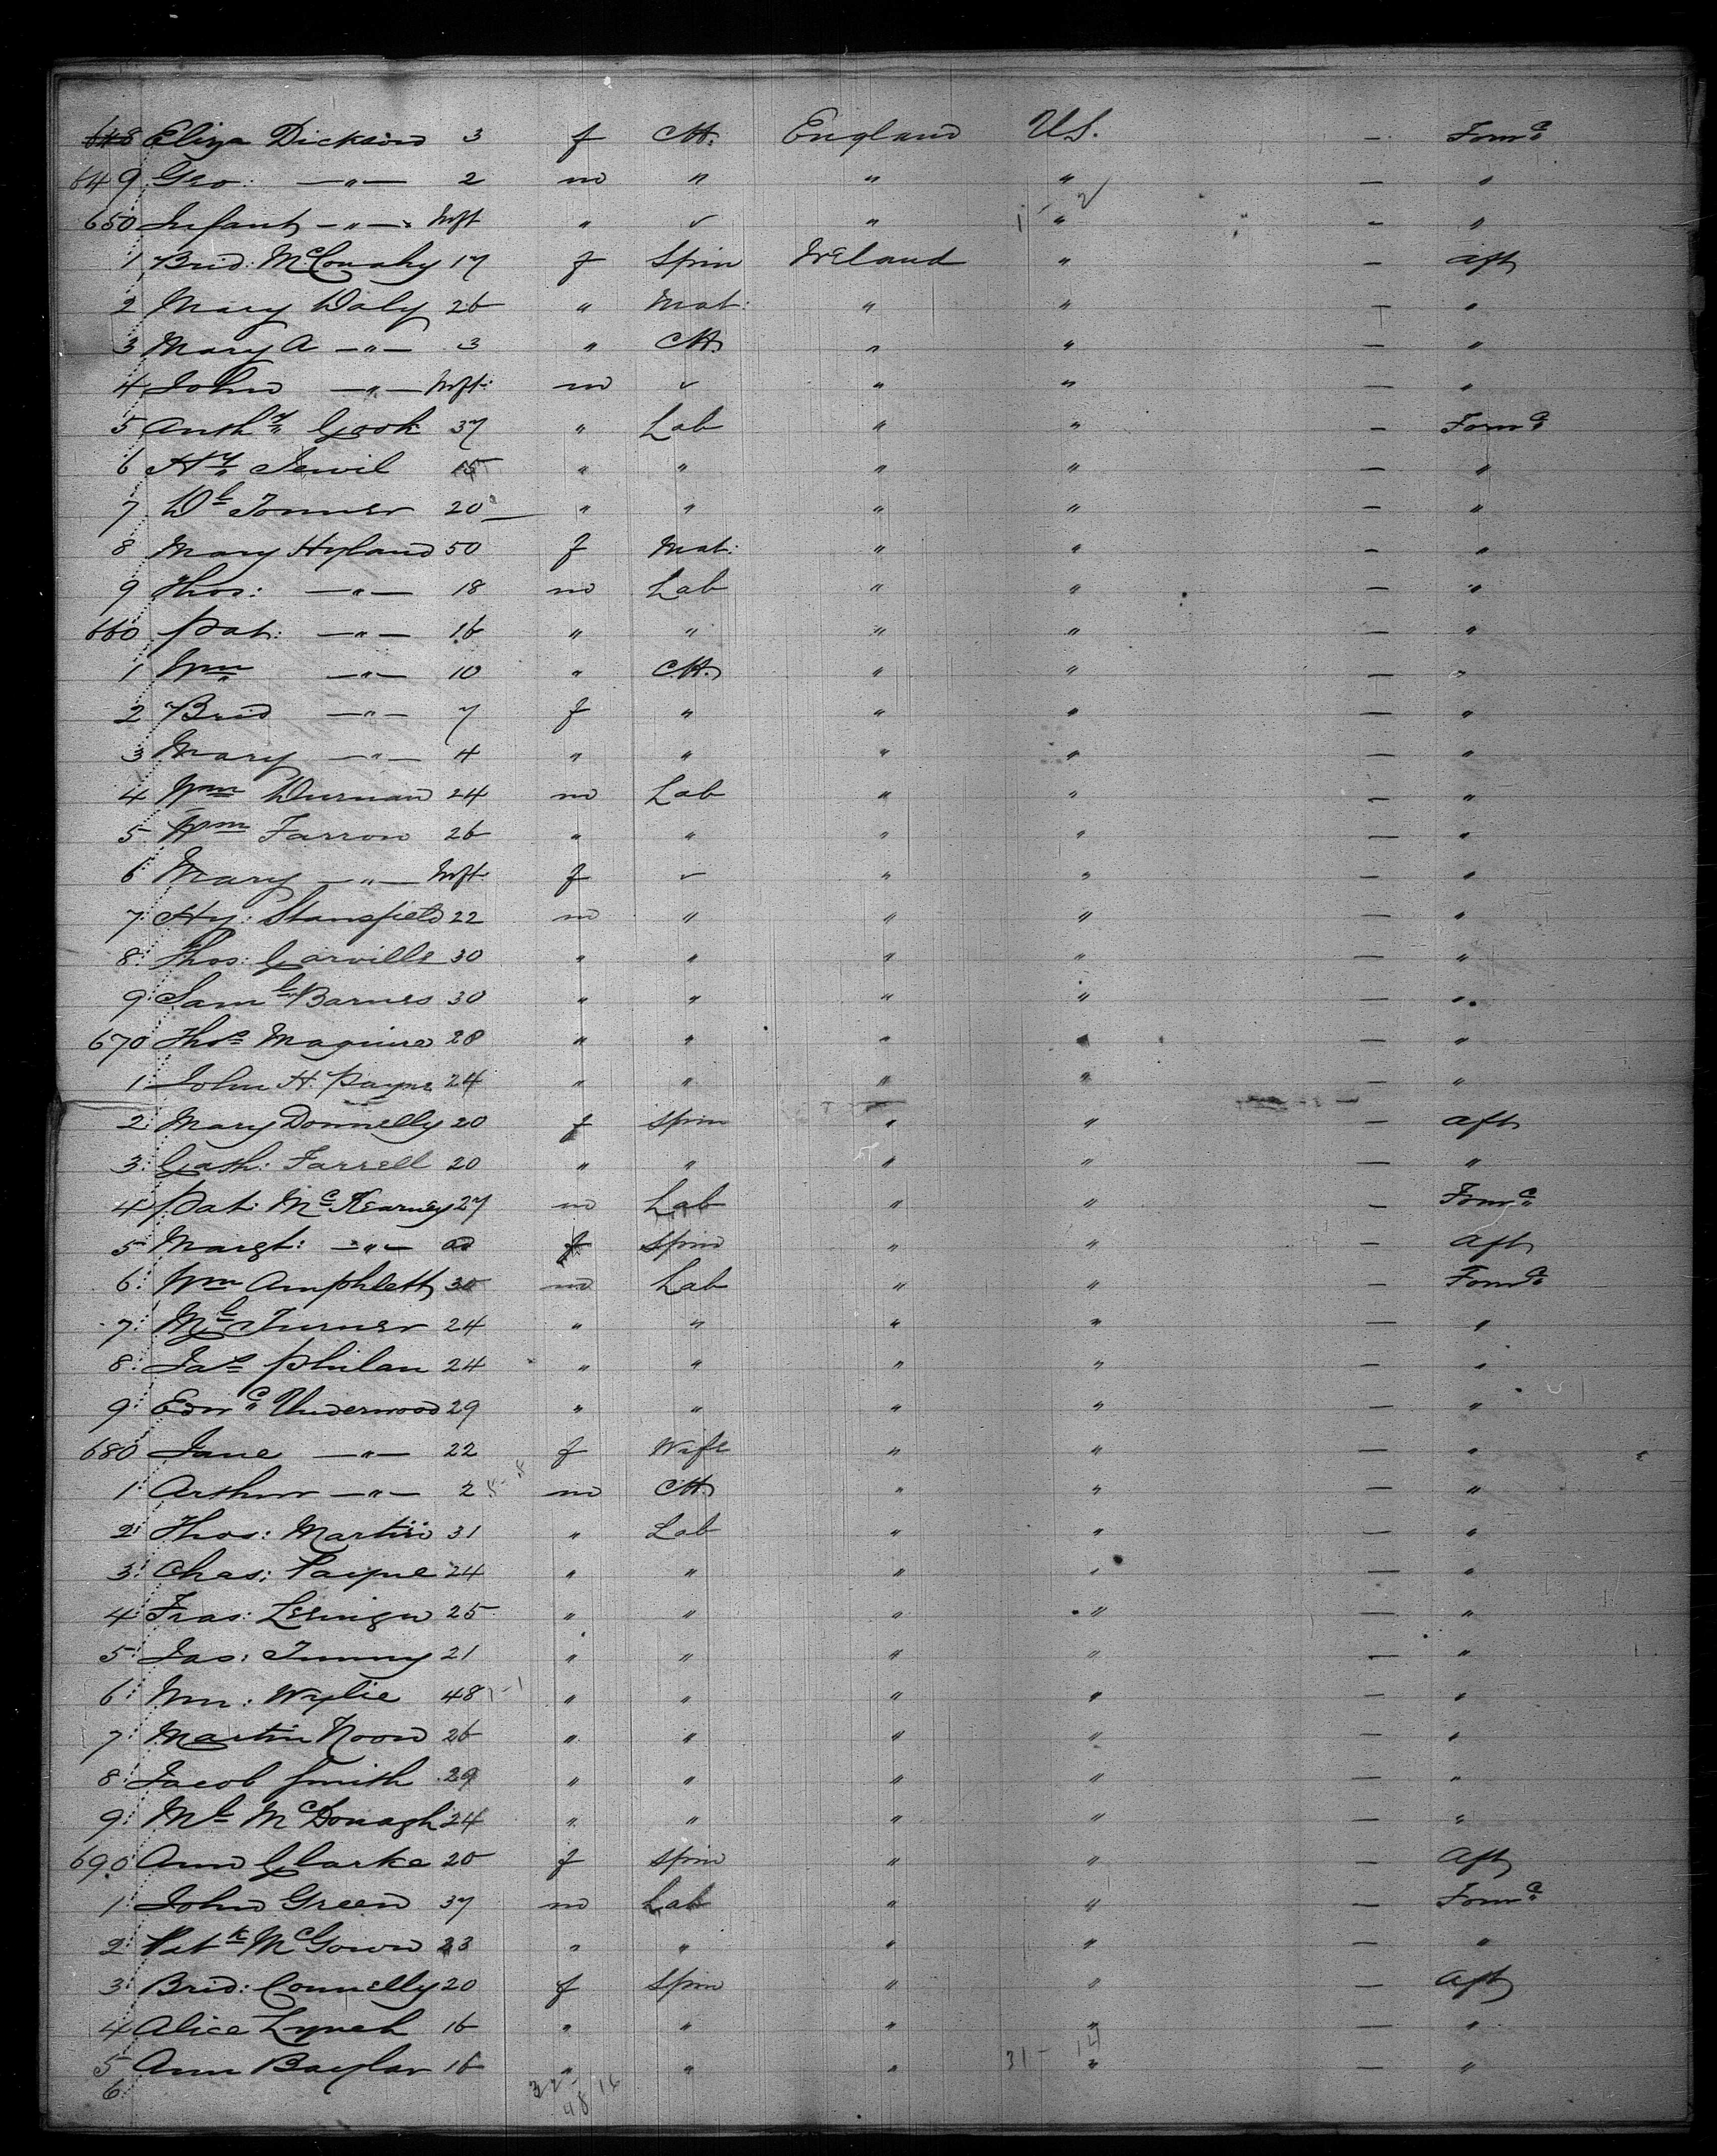 648 Eliza Dickson 3 f Ch. England U.S. — Forwd
649 Geo: —"— 2 m " " " — "
650 Infant —"— Inft " ✓ " " — "
1 Brid: McConahy 17 f Spin Ireland " — aft
2 Mary Daly 26 " Mat: " " — "
3 Mary A —"— 3 " Ch. " " — "
4 John —"— Inft: m ✓ " " — "
5 Anthy Cook 37 " Lab " " — Forwd
6 Hy Jewil 15 " " " " — "
7 Dl Tonner 20 " " " " — "
8 Mary Hyland 50 f Mat: " " — "
9 Thos: —"— 18 m Lab " " — "
660 Pat: —"— 16 " " " " — "
1 Wm —"— 10 " Ch. " " — "
2 Brid —"— 7 f " " " — "
3 Mary —"— 4 " " " " — "
4 Wm Durnan 24 m Lab " " — "
5 Wm Farron 26 " " " " — "
6 Mary —"— Inft f ✓ " " — "
7 Hy: Stansfield 22 m " " " — "
8 Thos: Carville 30 " " " " — "
9 Saml Barnes 30 " " " " — "
670 Thos Maguire 28 " " " " — "
1 John H. Payne 24 " " " " — "
2 Mary Donnelly 20 f Spin " " — aft
3 Cath: Farrell 20 " " " " — "
4 Pat: McKearney 27 m Lab " " — Forwd
5 Margt: —"— f Spin " " — Aft
6 Wm Amphlett 30 m Lab " " — Forwd
7 Ml Turner 24 " " " " — "
8 Jas Philan 24 " " " " — "
9 Edwd Underwood 29 " " " " — "
680 Jane —"— 22 f Wife " " — "
1 Arthur —"— 2 m Ch. " " — "
2 Thos: Martin 31 " Lab " " — "
3 Chas: Payne 24 " " " " — "
4 Fras: 25 " " " " — "
5 Jas: Tunny 21 " " " " — "
6 Wm: Wylie 48 " " " " — "
7 Martin Noon 26 " " " " — "
8 Jacob Smith 29 " " " " — "
9 Ml McDonagh 24 " " " " — "
690 Ann Clarke 20 f Spin " " — Aft
1 John Green 37 m Lab " " — Forwd
2 Patk McGown 23 " " " " — "
3 Brid: Connelly 20 f Spin " " — Aft
4 Alice Lynch 16 " " " " — "
5 Ann Baylar 16 " " " " — "
6